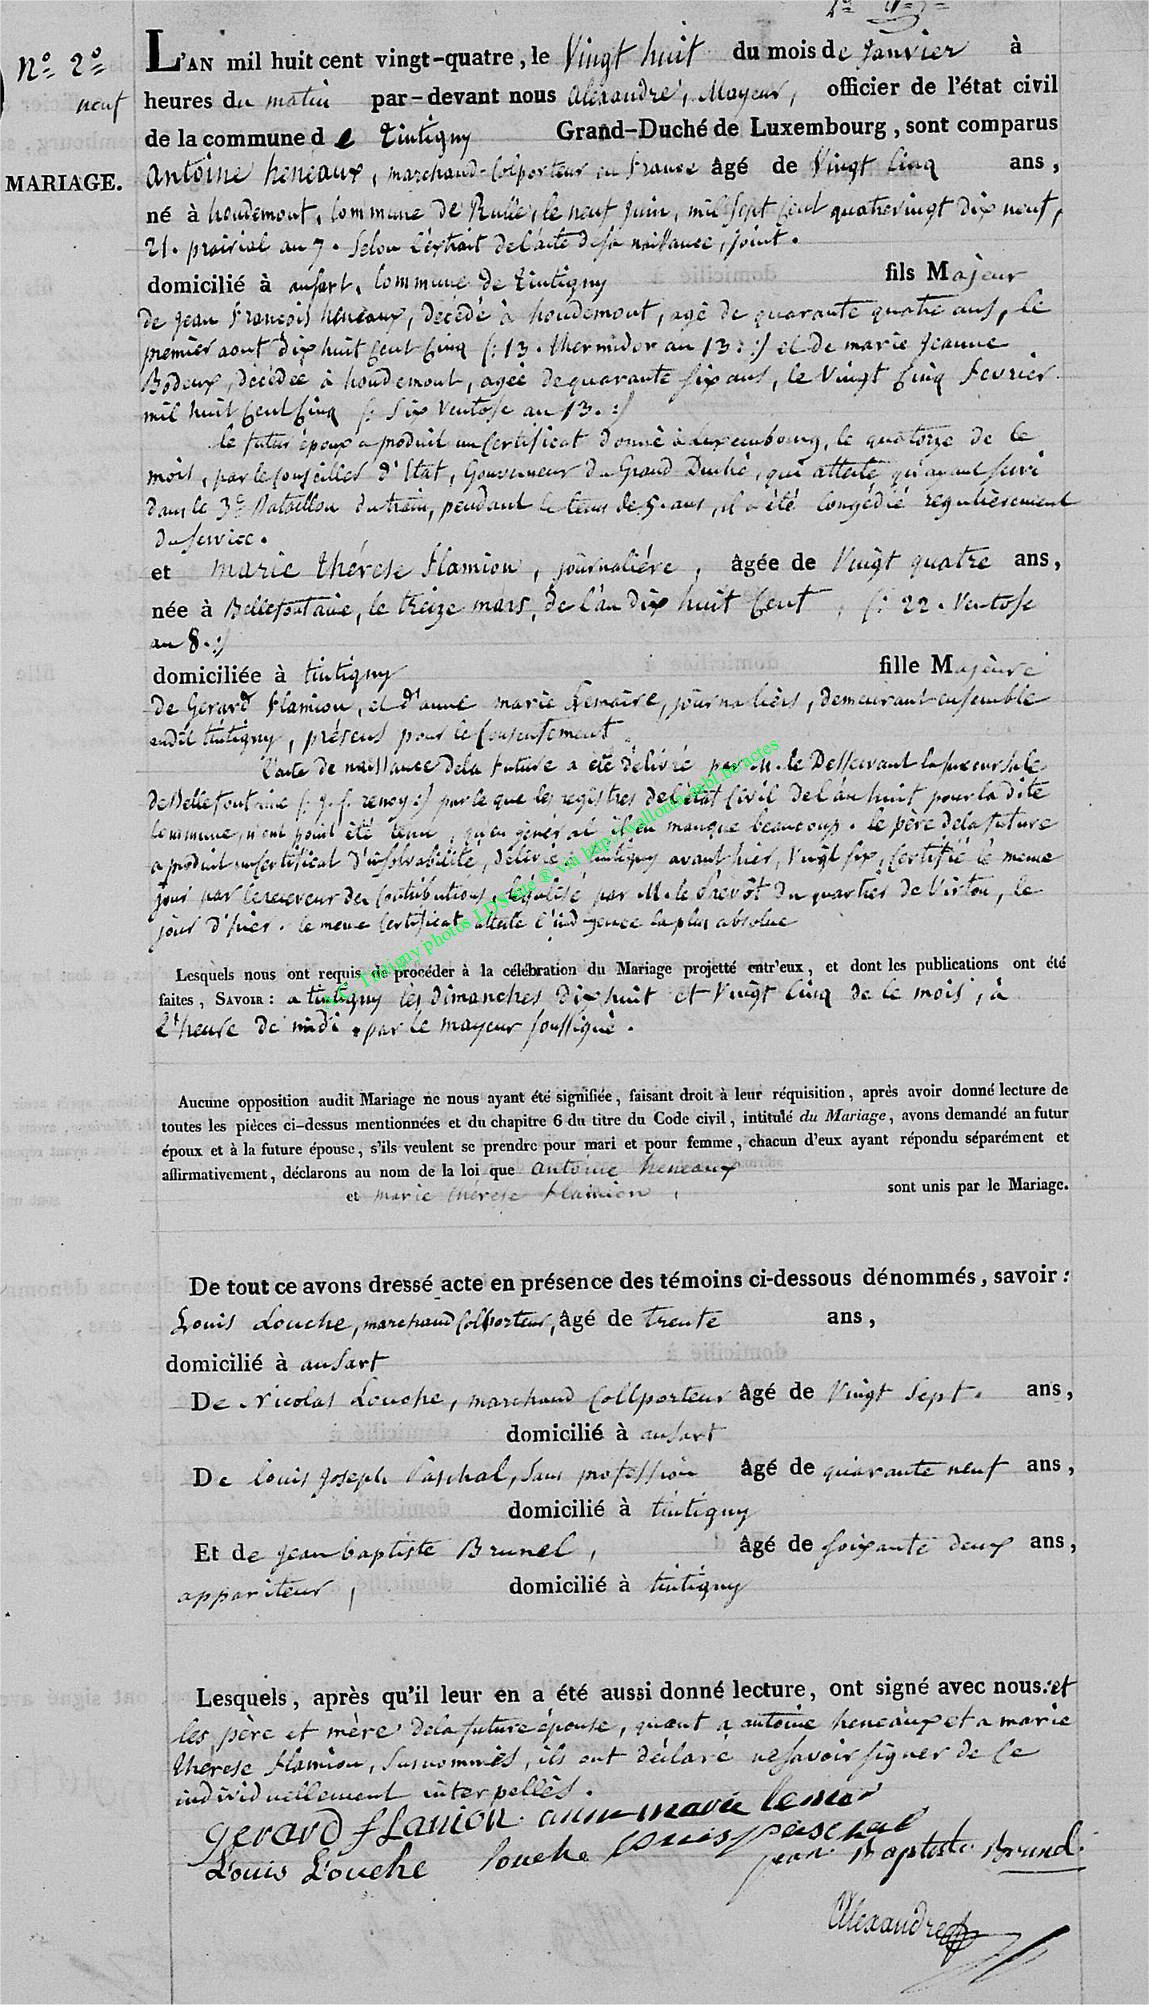 N.o 2.o
L'AN mil huit cent vingt-quatre, le Vingt huit du mois de janvier à
neuf heures du matin par-devant nous alexandre, Mayeur, officier de l'état civil
de la commune d e tintigny Grand-Duché de Luxembourg, sont comparus
MARIAGE.
antoine heneaux, marchand-Colporteur en France âgé de Vingt Cinq ans,
né à houdemont, Commune de Rulle, le neuf juin, mil sept Cent quatrevingt dix neuf,
21. prairial an 7. Selon l'extrait de l'acte de sa naissance, joint.
domicilié à ansart, Commune de tintigny fils Majeur
de jean françois heneaux, décédé à houdemont, agé de quarante quatre ans, le
premier aout dix huit Cent Cinq (: 13. thermidor an 13 :) et de marie jeanne
Bodeux, décédée à houdemont, agée de quarante six ans, le Vingt Cinq fevrier
mil huit Cent Cinq (: Six Ventose an 13. :)
le futur époux a produit un Certificat donné à luxembourg, le quatorze de ce
mois, par le Conseiller d'Etat, Gouverneur du Grand Duché, qui atteste qu'ayant servi
dans le 3.e Bataillon du train, pendant le tems de 5. ans, il a été congédié regulièrement
du service.
et marie thérese flamion, journalière, âgée de Vingt quatre ans,
née à Bellefontaine, le treize mars, de l'an dix huit Cent, (: 22. Ventose
an 8. :)
domiciliée à tintigny fille Majeure
de Gerard flamion, et d'anne marie Lemaire, journaliers, demeurant ensemble
audit tintigny, présens pour le Consentement.
l'acte de naissance de la future a été délivré par M. le Desservant la succursale
de Bellefontaine (: j. f. renoy :) parce que les registres de l'état Civil de l'an huit pour la dite
Commune, n'ont point été tenu, qu'en général il en manque beaucoup. le père de la future
a produit un Certificat d'insolvabilité, délivré à tintigny avant hier, Vingt six, Certifié le meme
jour par le receveur des Contributions, légalisé par M. le Prevôt du quartier de Virton, le
jour d'hier. le meme Certificat atteste l'indigence la plus absolue
AC Tintigny photos LDS site ® via http://wallonia-asbl.be/actes
Lesquels nous ont requis de procéder à la célébration du Mariage projetté entr'eux, et dont les publications ont été
faites, SAVOIR : a tintigny les dimanches dix huit et Vingt Cinq de ce mois, à
l'heure de midi, par le mayeur soussigné.
Aucune opposition audit Mariage ne nous ayant été signifiée, faisant droit à leur réquisition, après avoir donné lecture de
toutes les pièces ci-dessus mentionnées et du chapitre 6 du titre du Code civil, intitulé du Mariage, avons demandé au futur
époux et à la future épouse, s'ils veulent se prendre pour mari et pour femme, chacun d'eux ayant répondu séparément et
affirmativement, déclarons au nom de la loi que antoine heneaux
et marie thérese flamion, sont unis par le Mariage.
De tout ce avons dressé acte en présence des témoins ci-dessous dénommés, savoir :
Louis Louche, marchand Colporteur, âgé de trente ans,
domicilié à ansart
De Nicolas Louche, marchand Collporteur âgé de Vingt Sept. ans,
domicilié à ansart
De louis joseph Paschal, Sans profession âgé de quarante neuf ans,
domicilié à tintigny
Et de jean baptiste Brunel, âgé de soixante deux ans,
appariteur, domicilié à tintigny
Lesquels, après qu'il leur en a été aussi donné lecture, ont signé avec nous : et
les père et mère de la future épouse, quant a antoine heneaux et a marie
thérese flamion, susnommés, ils ont déclaré ne savoir signer de ce
individuellement interpellés.
gerard flamion anne marie lemer
Louis Louche louche louis paschal
jean Baptiste Brunel
Alexandre